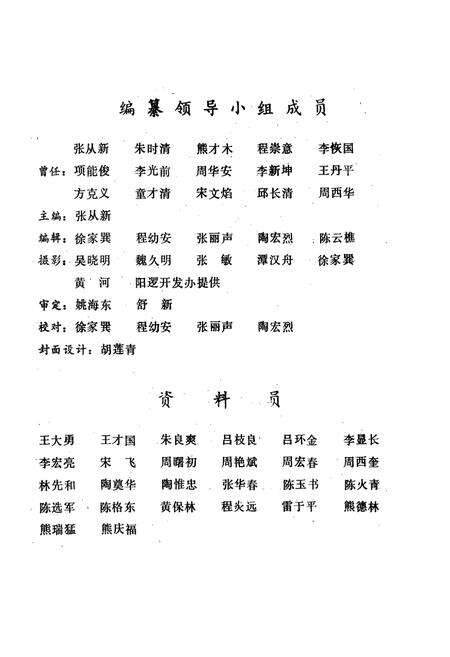 编纂领导小组成员
张从新 朱时清 熊才木 程崇意 李恢国
曾任：项能俊 李光前 周华安 李新坤 王丹平
方克义 童才清 宋文焰 邱长清 周西华
主编：张从新
编辑：徐家巽 程幼安 张丽声 陶宏烈 陈云樵
摄影：吴晓明 魏久明 张敏 潭汉舟 徐家巽
黄河 阳逻开发办提供
审定：姚海东 舒新
校对：徐家巽 程幼安 张丽声 陶宏烈
封面设计：胡莲青
资料员
王大勇 王才国 朱良爽 吕枝良 吕环金 李显长
李宏亮 宋飞 周曙初 周艳斌 周宏春 周西奎
林先和 陶奠华 陶惟忠 张华春 陈玉书 陈火青
陈选军 陈格东 黄保林 程火远 雷于平 熊德林
熊瑞猛 熊庆福